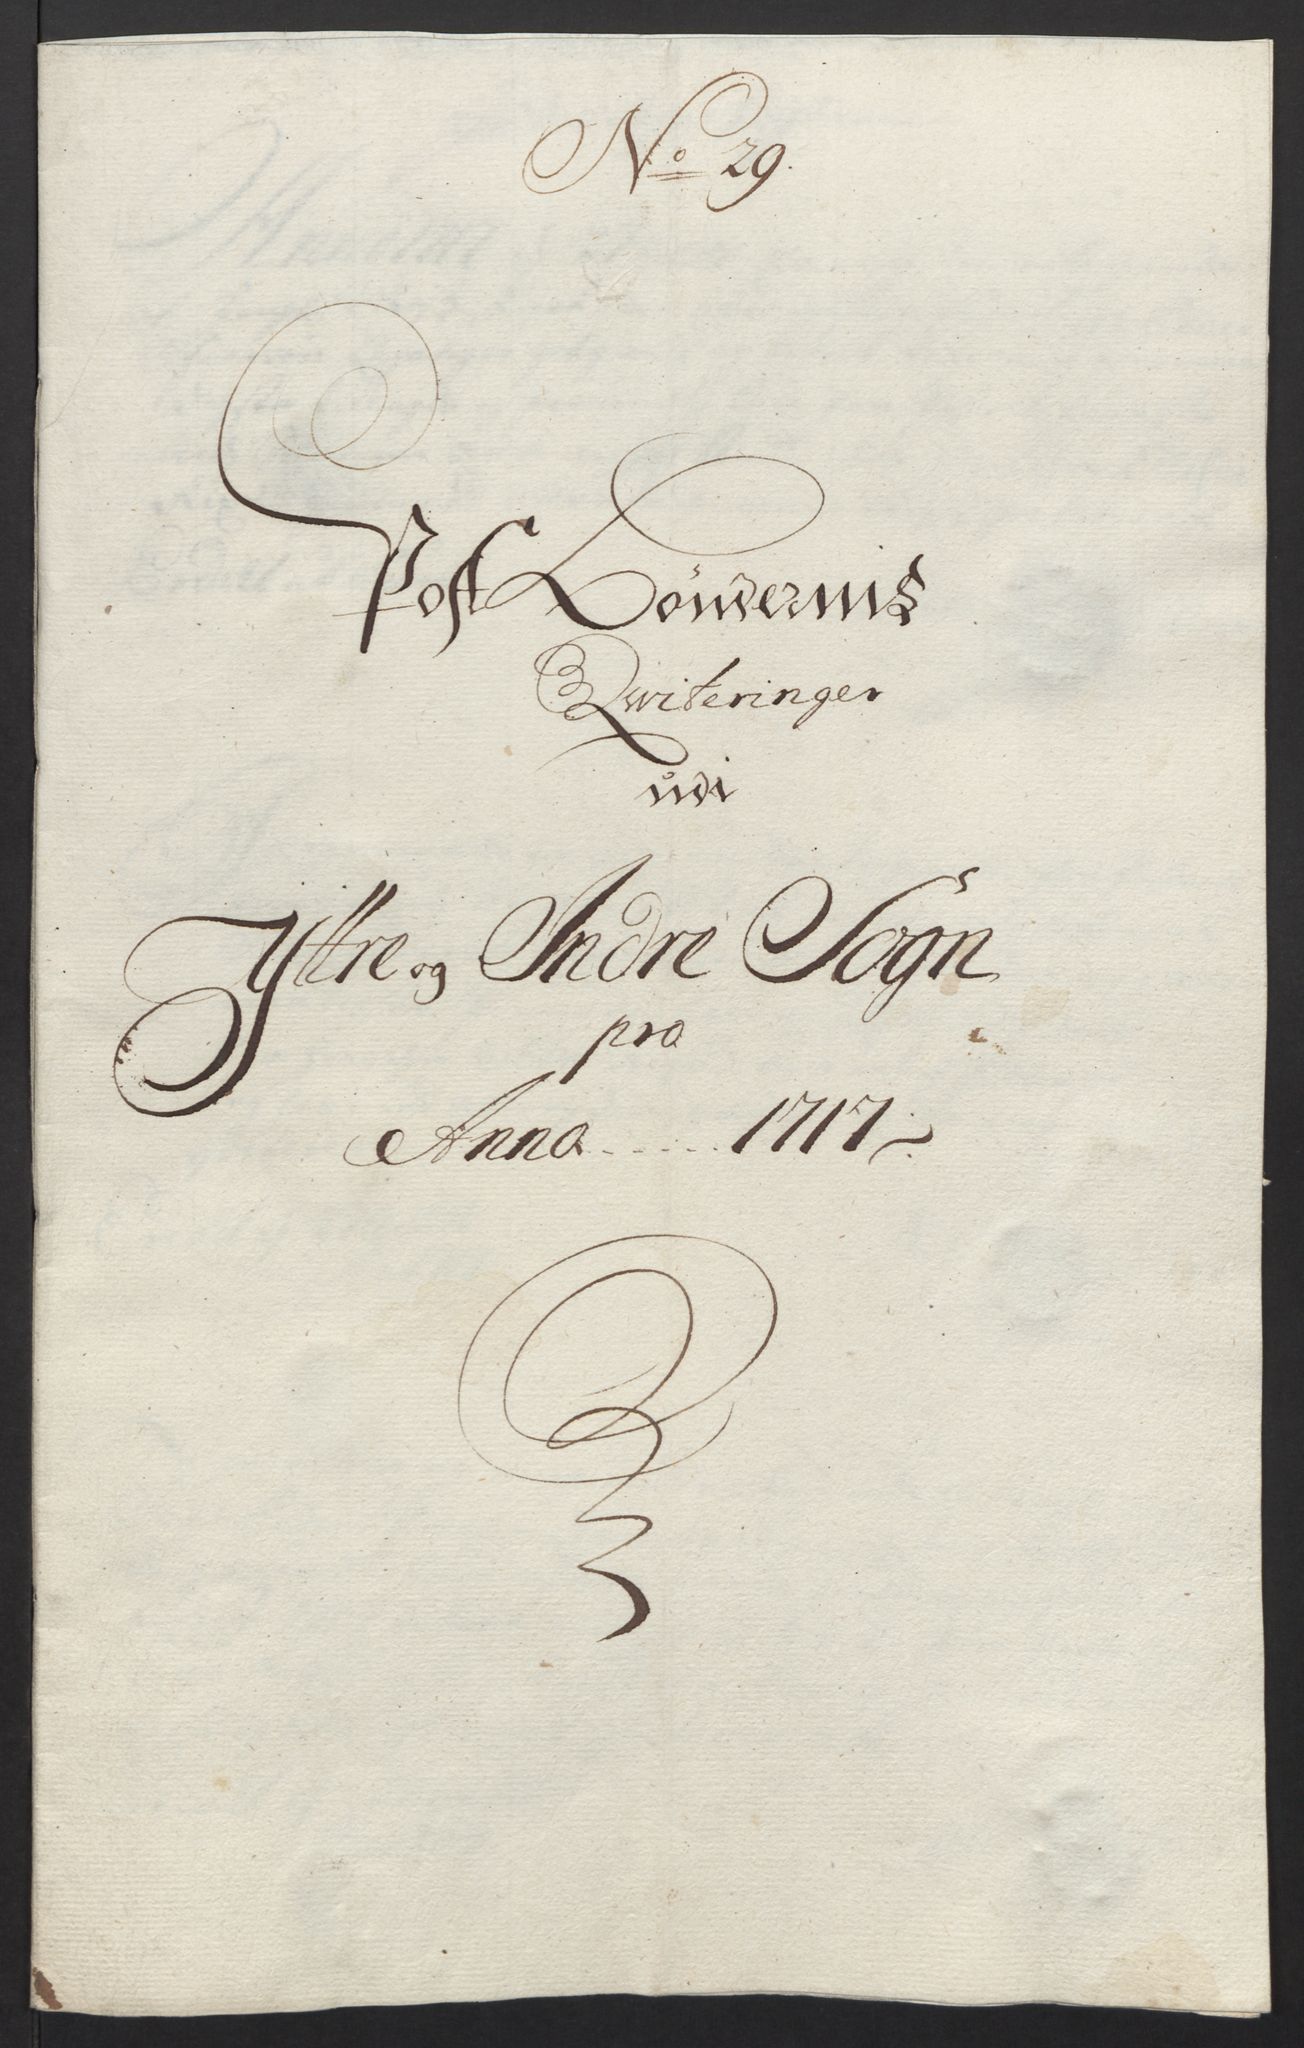 No 29.
Post Böndernis
Qwiteringer
udi
Yttre og Indre Sogn
pro
Anno ..... 1717